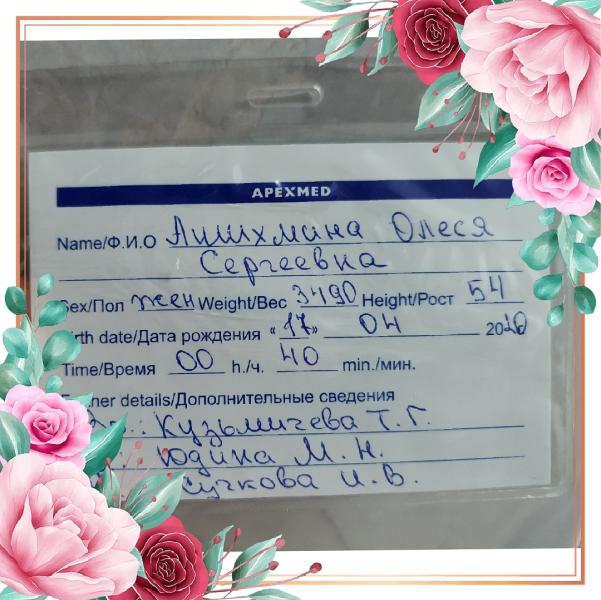 APEXMED
Name/Ф.И.О Лишхмина Олеся
Сергеевна
Sex/Пол жен Weight/Вес 3490 Height/Рост 54
Birth date/Дата рождения « 17 » 04 2020
Time/Время 00 h./ч. 40 min./мин.
details/Дополнительные сведения
Кузьмичева Т. Г.
Юдина М. Н.
Сучкова И. В.